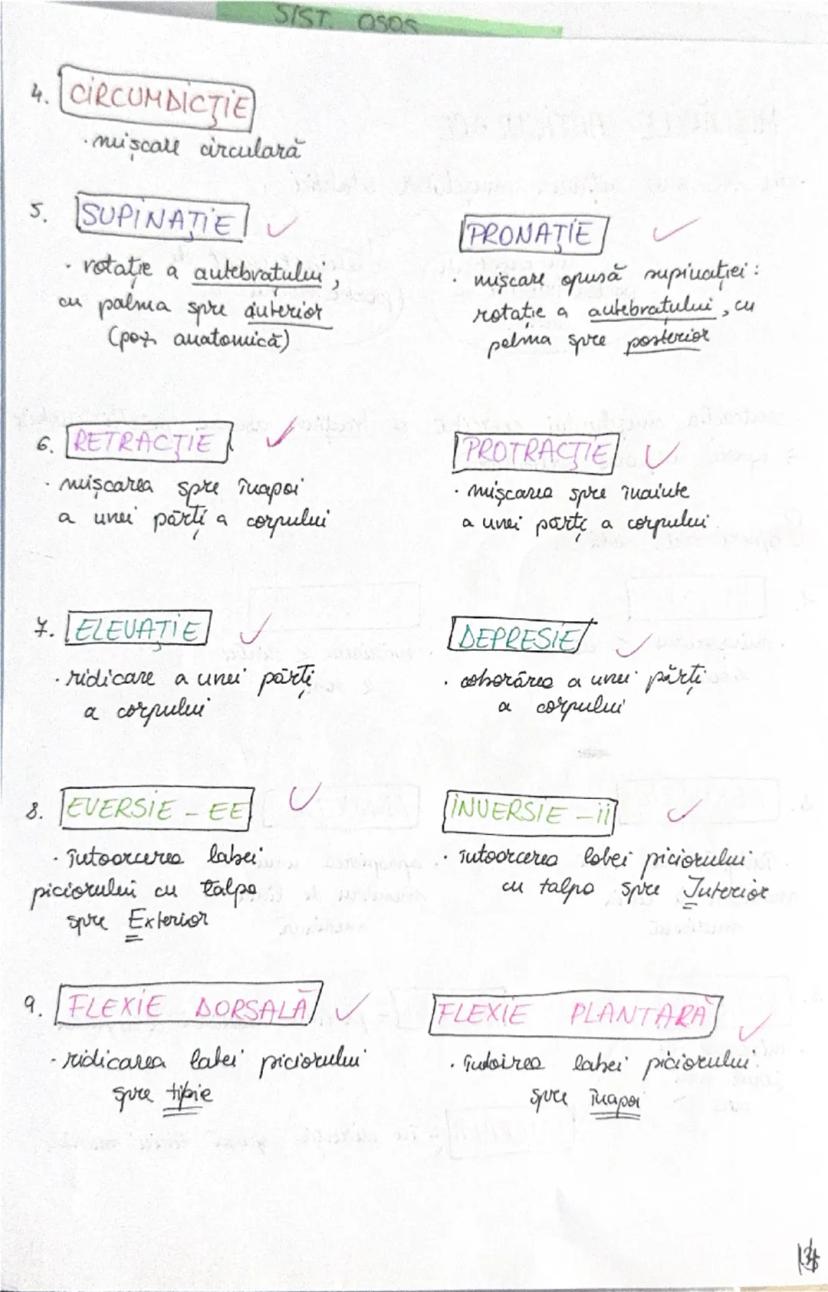 SIST. OSOS
4. CIRCUMDICȚIE
· mișcare circulară
5. SUPINAȚIE
· rotație a antebrațului,
cu palma spre anterior
(poz. anatomică)
PRONAȚIE
· mișcare opusă supinației:
rotație a antebrațului, cu
palma spre posterior
6. RETRACȚIE
· mișcarea spre înapoi
a unei părți a corpului
PROTRACȚIE
· mișcarea spre înainte
a unei părți a corpului
7. ELEVAȚIE
· ridicare a unei părți
a corpului
DEPRESIE
· coborârea a unei părți
a corpului
8. EVERSIE - EE
· întoarcerea labei
piciorului cu talpa
spre Exterior
INVERSIE - ii
· întoarcerea labei piciorului
cu talpa spre Interior
9. FLEXIE DORSALĂ
· ridicarea labei piciorului
spre tibie
FLEXIE PLANTARĂ
· îndoirea labei piciorului
spre înapoi